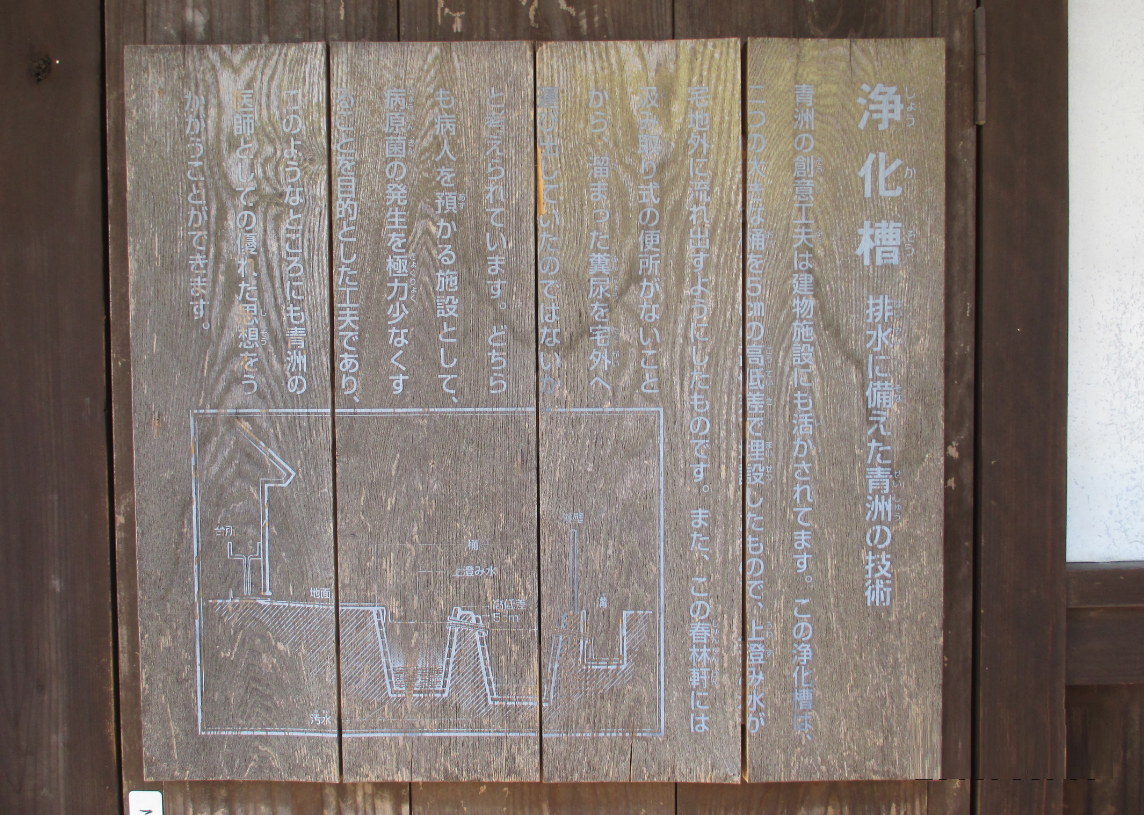 浄化槽 排水に備えた青洲の技術
青洲の創意工夫は建物施設にも活かされてます。この浄化槽は、
二つの大きな桶を5㎝の高低差で埋設したもので、上澄み水が
宅地外に流れ出すようにしたものです。また、この春林軒には
汲み取り式の便所がないこと
から、溜まった糞尿を宅外へ
運び出していたのではないか
と考えられています。どちら
も病人を預かる施設として、
病原菌の発生を極力少なくす
ることを目的とした工夫であり、
このようなところにも青洲の
医師としての優れた思想をう
かがうことができます。
溝
桶
上澄み水
高低差
5cm
地面
台所
汚水